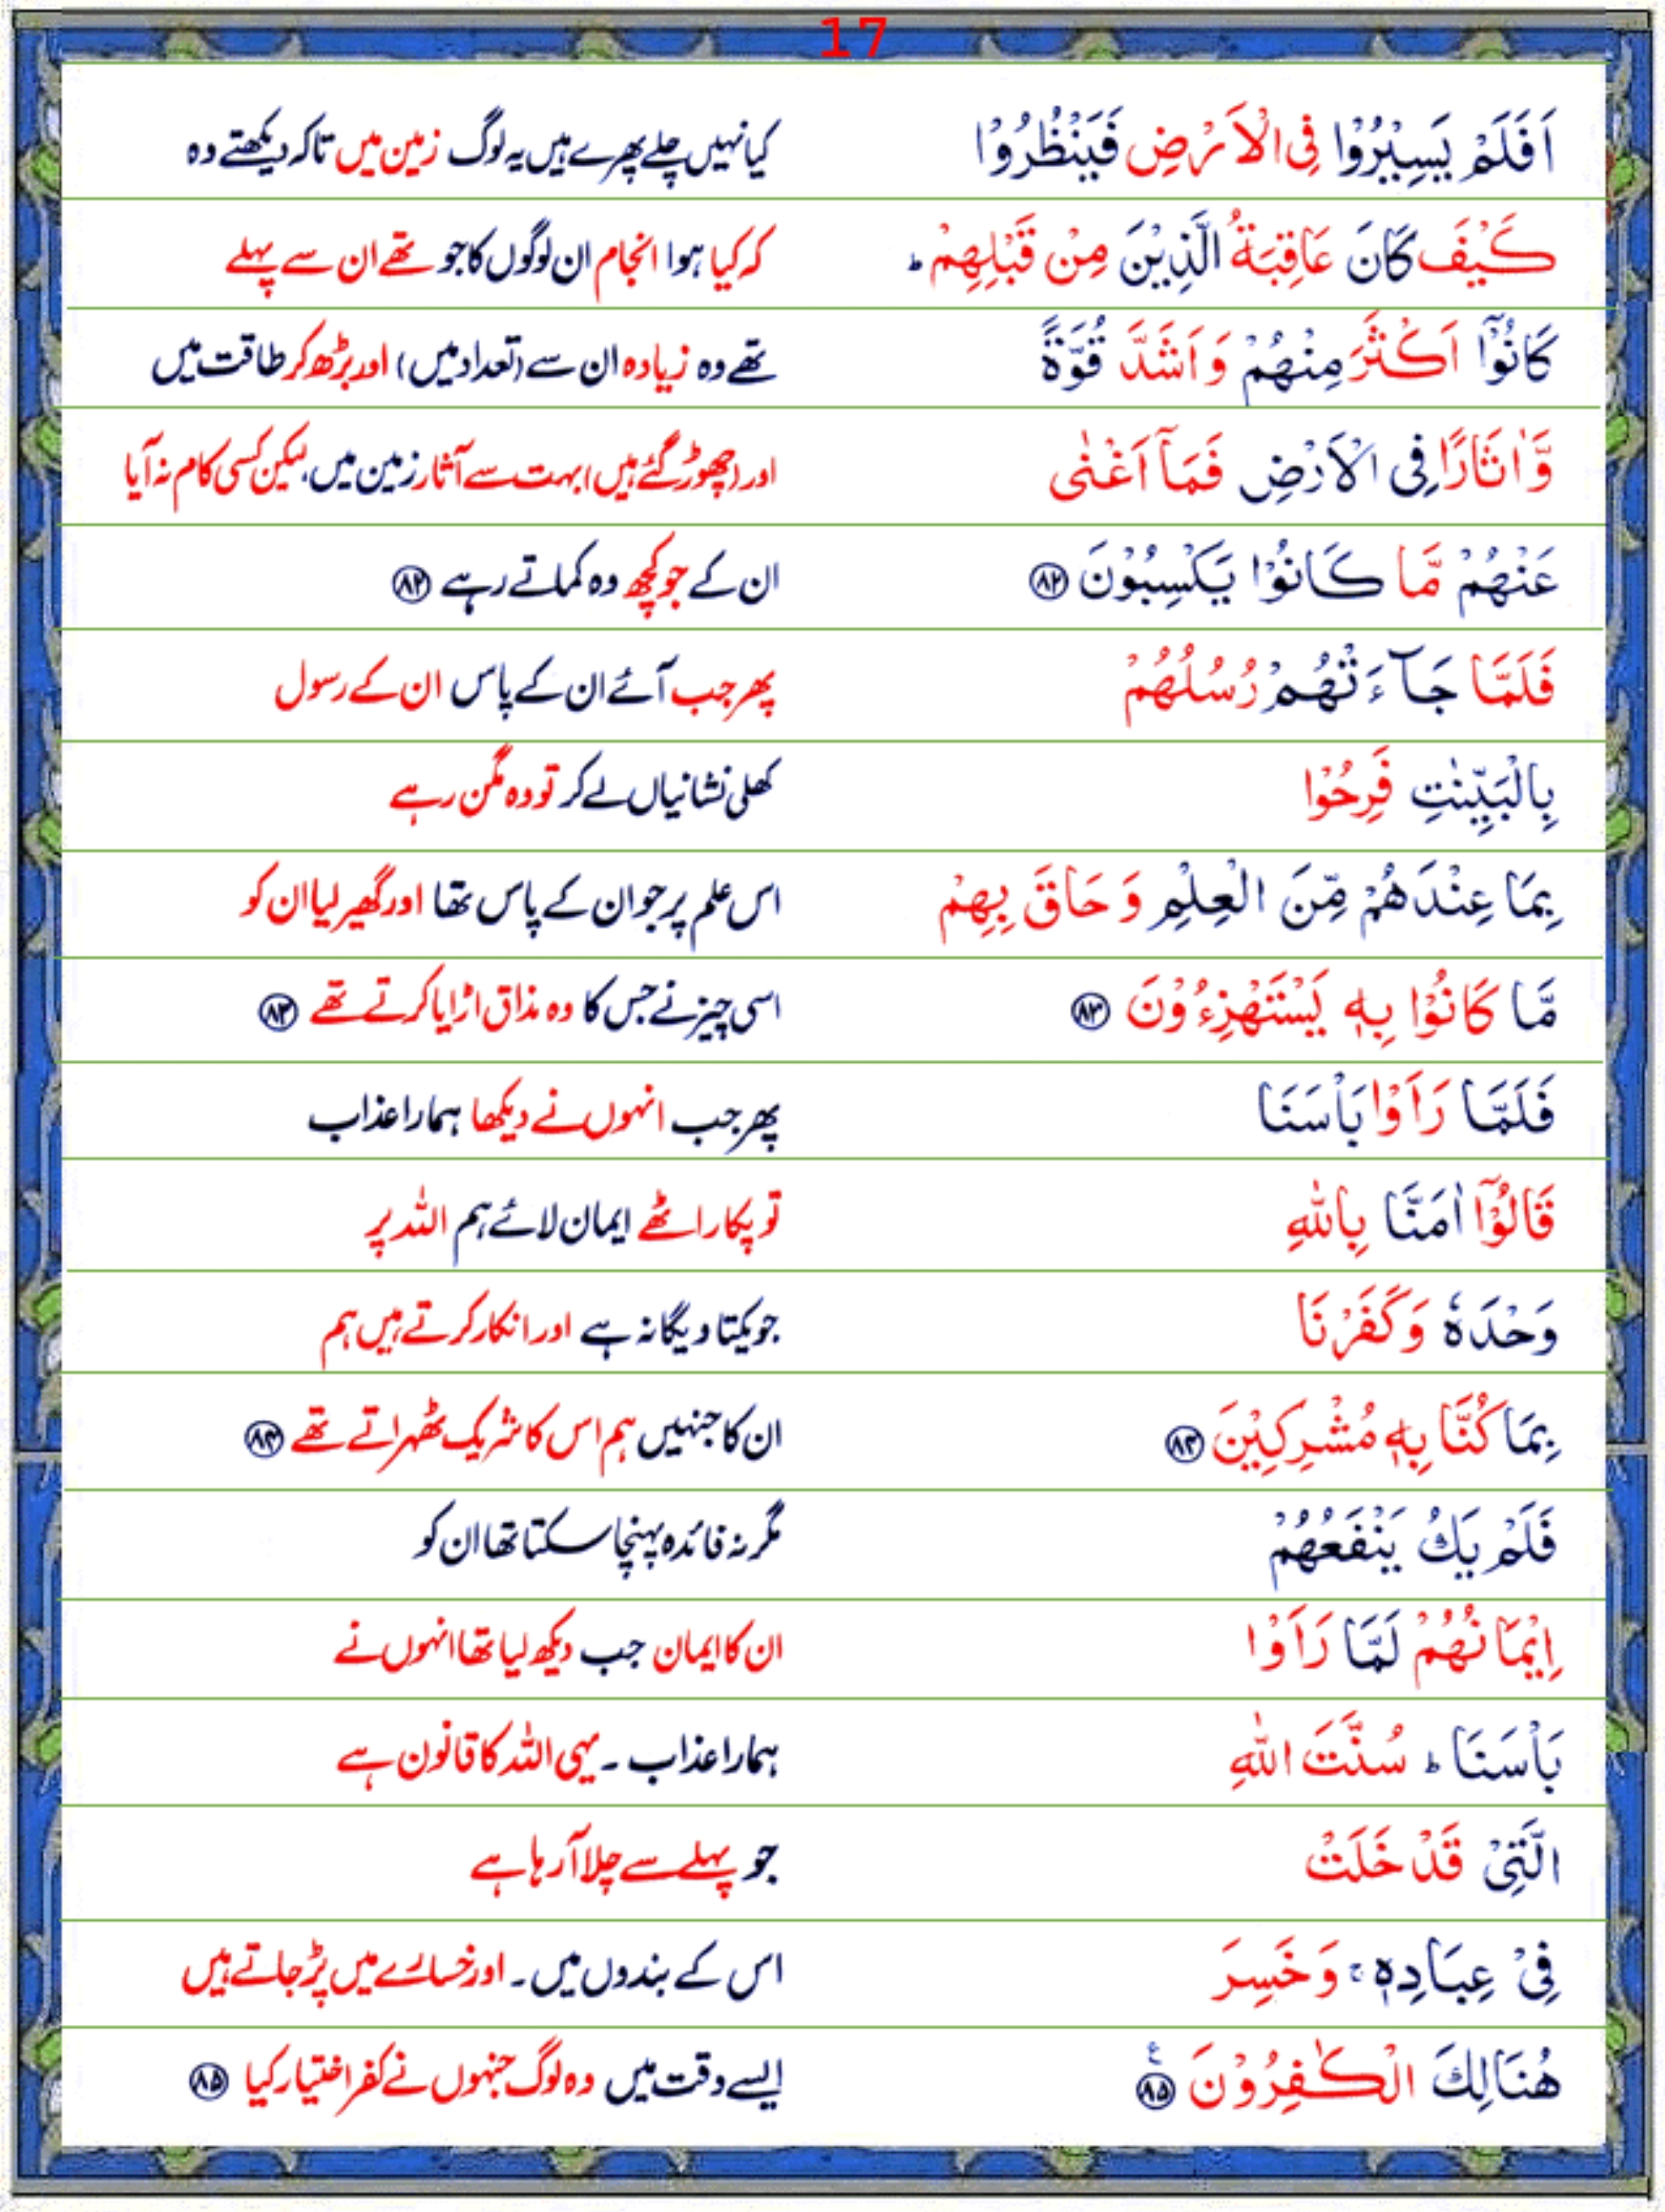 17
اَفَلَمْ يَسِيْرُوْا فِى الْاَرْضِ فَيَنْظُرُوْا
کیا نہیں چلے پھرے ہیں یہ لوگ زمین میں تاکہ دیکھتے وہ
كَيْفَ كَانَ عَاقِبَةُ الَّذِيْنَ مِنْ قَبْلِهِمْ ؕ
کہ کیا ہوا انجام ان لوگوں کا جو تھے ان سے پہلے
كَانُوْۤا اَكْثَرَ مِنْهُمْ وَاَشَدَّ قُوَّةً
تھے وہ زیادہ ان سے (تعداد میں) اور بڑھ کر طاقت میں
وَّاٰثَارًا فِى الْاَرْضِ فَمَاۤ اَغْنٰى
اور (چھوڑ گئے ہیں) بہت سے آثار زمین میں، لیکن کسی کام نہ آیا
عَنْهُمْ مَّا كَانُوْا يَكْسِبُوْنَ ۸۲
ان کے جو کچھ وہ کماتے رہے ۸۲
فَلَمَّا جَآءَتْهُمْ رُسُلُهُمْ
پھر جب آئے ان کے پاس ان کے رسول
بِالْبَيِّنٰتِ فَرِحُوْا
کھلی نشانیاں لے کر تو وہ مگن رہے
بِمَا عِنْدَهُمْ مِّنَ الْعِلْمِ وَحَاقَ بِهِمْ
اس علم پر جو ان کے پاس تھا اور گھیر لیا ان کو
مَّا كَانُوْا بِهٖ يَسْتَهْزِءُوْنَ ۸۳
اسی چیز نے جس کا وہ مذاق اڑایا کرتے تھے ۸۳
فَلَمَّا رَاَوْا بَاْسَنَا
پھر جب انہوں نے دیکھا ہمارا عذاب
قَالُوْۤا اٰمَنَّا بِاللّٰهِ
تو پکار اٹھے ایمان لائے ہم اللہ پر
وَحْدَهٗ وَكَفَرْنَا
جو یکتا و یگانہ ہے اور انکار کرتے ہیں ہم
بِمَا كُنَّا بِهٖ مُشْرِكِيْنَ ۸۴
ان کا جنہیں ہم اس کا شریک ٹھہراتے تھے ۸۴
فَلَمْ يَكُ يَنْفَعُهُمْ
مگر نہ فائدہ پہنچا سکتا تھا ان کو
اِيْمَانُهُمْ لَمَّا رَاَوْا
ان کا ایمان جب دیکھ لیا تھا انہوں نے
بَاْسَنَا ؕ سُنَّتَ اللّٰهِ
ہمارا عذاب ۔ یہی اللہ کا قانون ہے
الَّتِىْ قَدْ خَلَتْ
جو پہلے سے چلا آ رہا ہے
فِىْ عِبَادِهٖ ۚ وَخَسِرَ
اس کے بندوں میں ۔ اور خسارے میں پڑ جاتے ہیں
هُنَالِكَ الْكٰفِرُوْنَ ۸۵ ع
ایسے وقت میں وہ لوگ جنہوں نے کفر اختیار کیا ۸۵